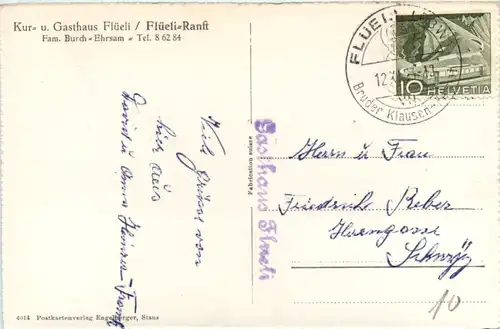 Kur- u. Gasthaus Flüeli / Flüeli-Ranft
Fam. Burch-Ehrsam - Tel. 8 62 84
FLÜELI
12
Bruder Klausen-
10 HELVETIA
Viele Grüsse von
hier aus
Fabrication suisse
Gasthaus Flüeli
Herrn u Frau
Friedrich Reber
Herrengasse
Schwyz
10
4014 Postkartenverlag Engelberger, Stans